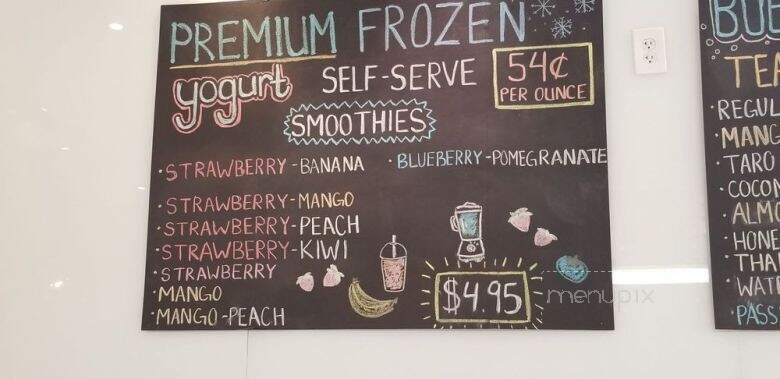 PREMIUM FROZEN
yogurt SELF-SERVE
54¢
PER OUNCE
SMOOTHIES
·STRAWBERRY-BANANA
·BLUEBERRY-POMEGRANATE
·STRAWBERRY-MANGO
·STRAWBERRY-PEACH
·STRAWBERRY-KIWI
·STRAWBERRY
·MANGO
·MANGO-PEACH
$4.95
menupix
·TARO